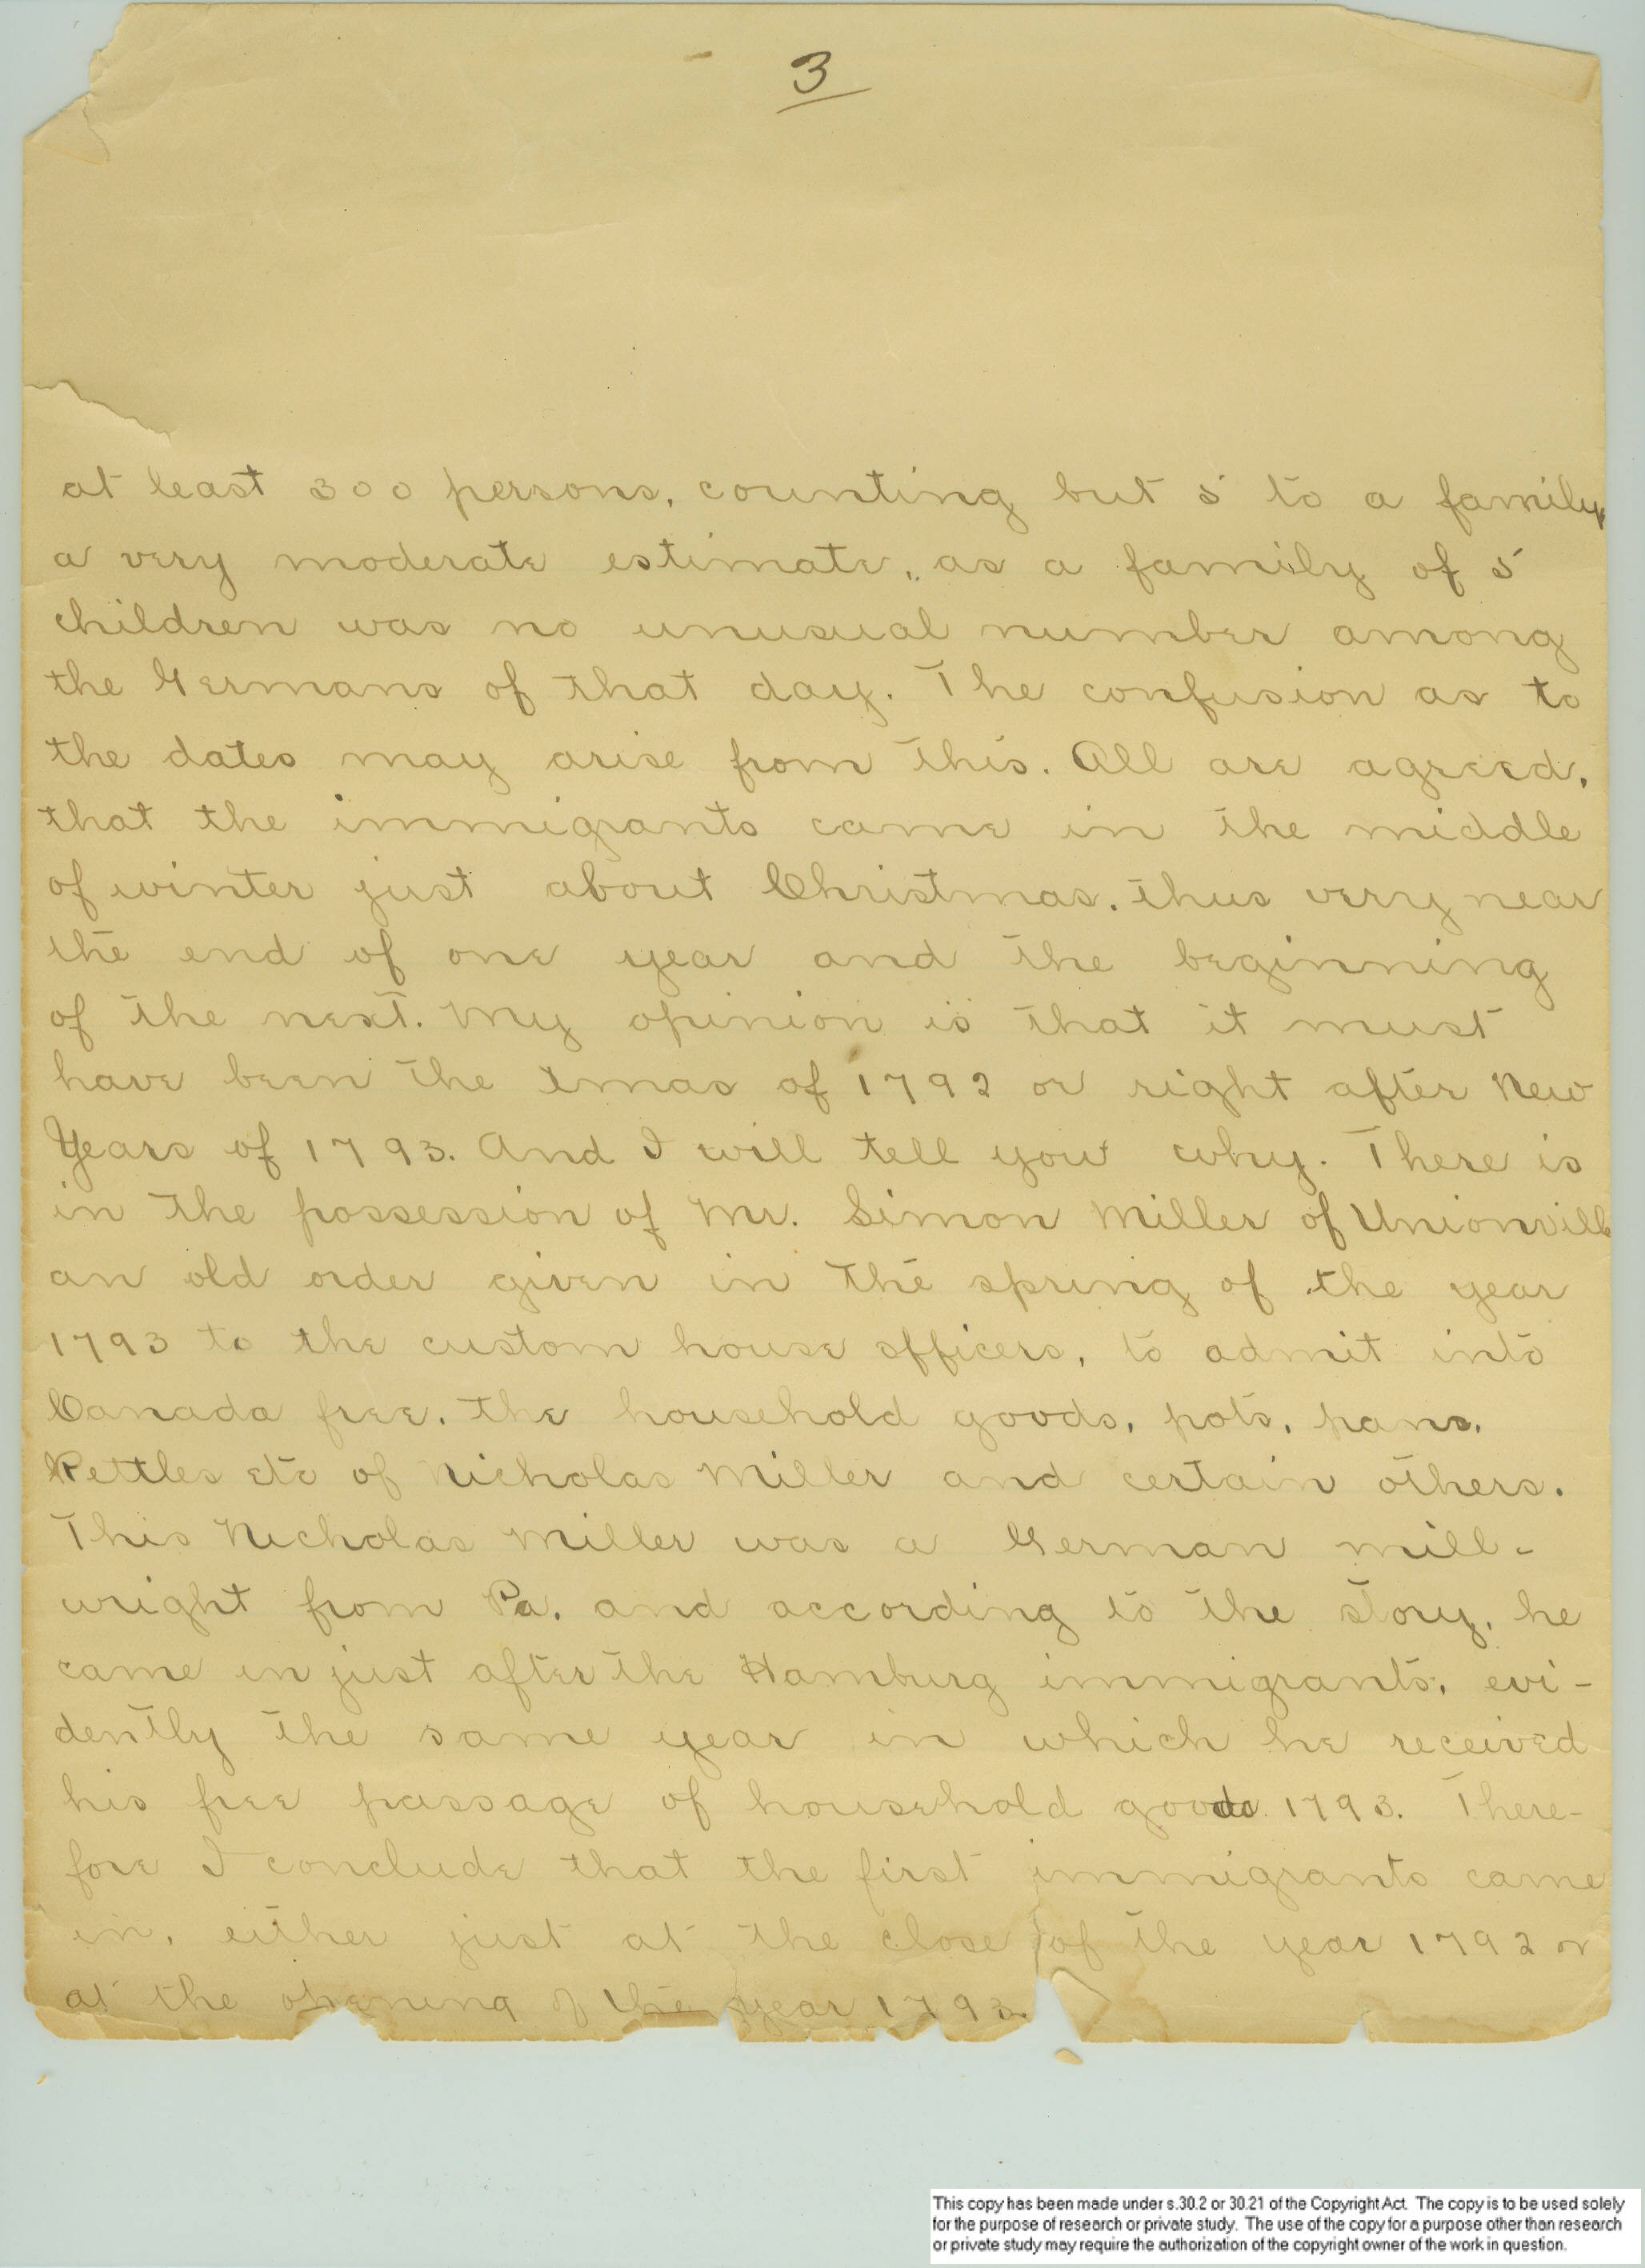 3
at least 300 persons, counting but 5 to a family,
a very moderate estimate, as a family of 5
children was no unusual number among
the Germans of that day. The confusion as to
the dates may arise from this. All are agreed,
that the immigrants came in the middle
of winter just about Christmas, thus very near
the end of one year and the beginning
of the next. My opinion is that it must
have been the Xmas of 1792 or right after New
Years of 1793. And I will tell you why. There is
in the possession of Mr. Simon Miller of Unionville
an old order given in the spring of the year
1793 to the custom house officers, to admit into
Canada free, the household goods, pots, pans,
Kettles etc of Nicholas Miller and certain others.
This Nicholas Miller was a German mill-
wright from Pa. and according to the story, he
came in just after the Hamburg immigrants, evi-
dently the same year in which he received
his free passage of household goods 1793. There-
fore I conclude that the first immigrants came
in, either just at the close of the year 1792 or
at the opening of the year 1793.
This copy has been made under s.30.2 or 30.21 of the Copyright Act. The copy is to be used solely
for the purpose of research or private study. The use of the copy for a purpose other than research
or private study may require the authorization of the copyright owner of the work in question.